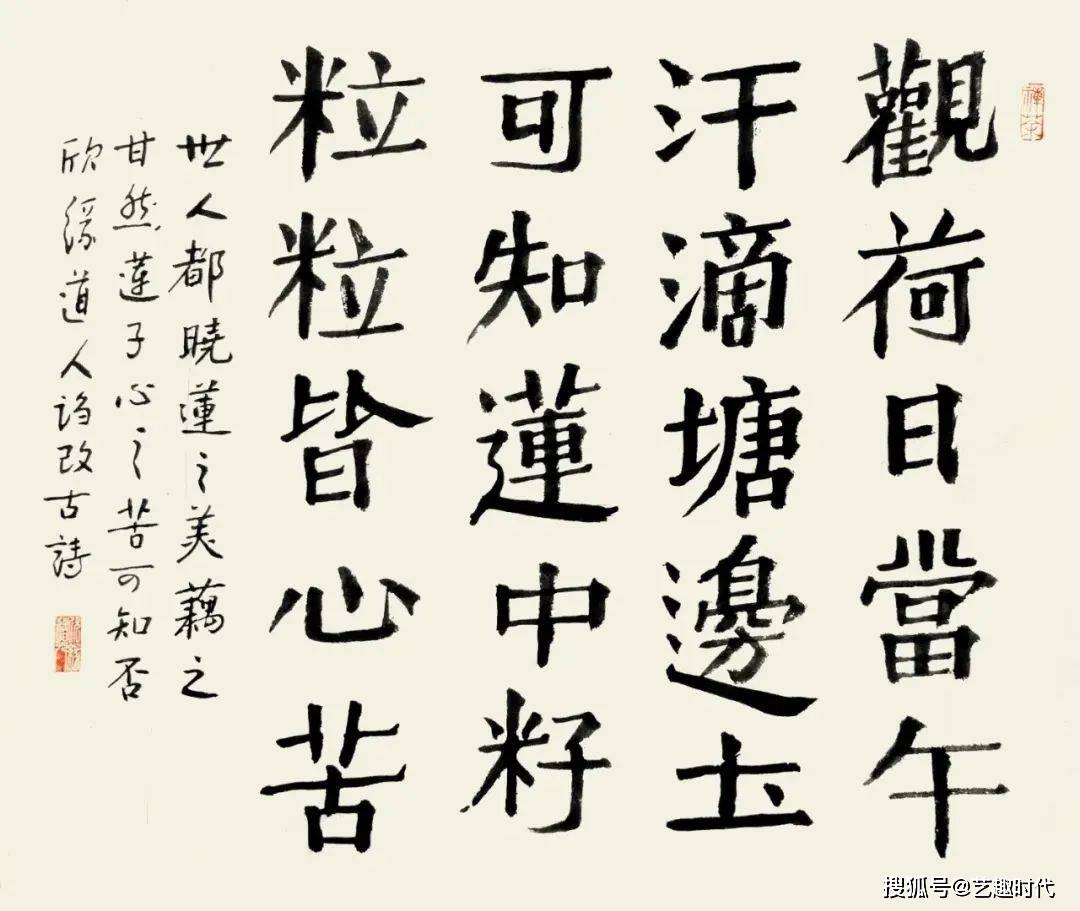 禪茶
觀荷日當午
汗滴塘邊圡
可知蓮中籽
粒粒皆心苦
世人都曉蓮之美藕之
甘然蓮子心之苦可知否
欣緣道人诌改古詩
搜狐号@艺趣时代